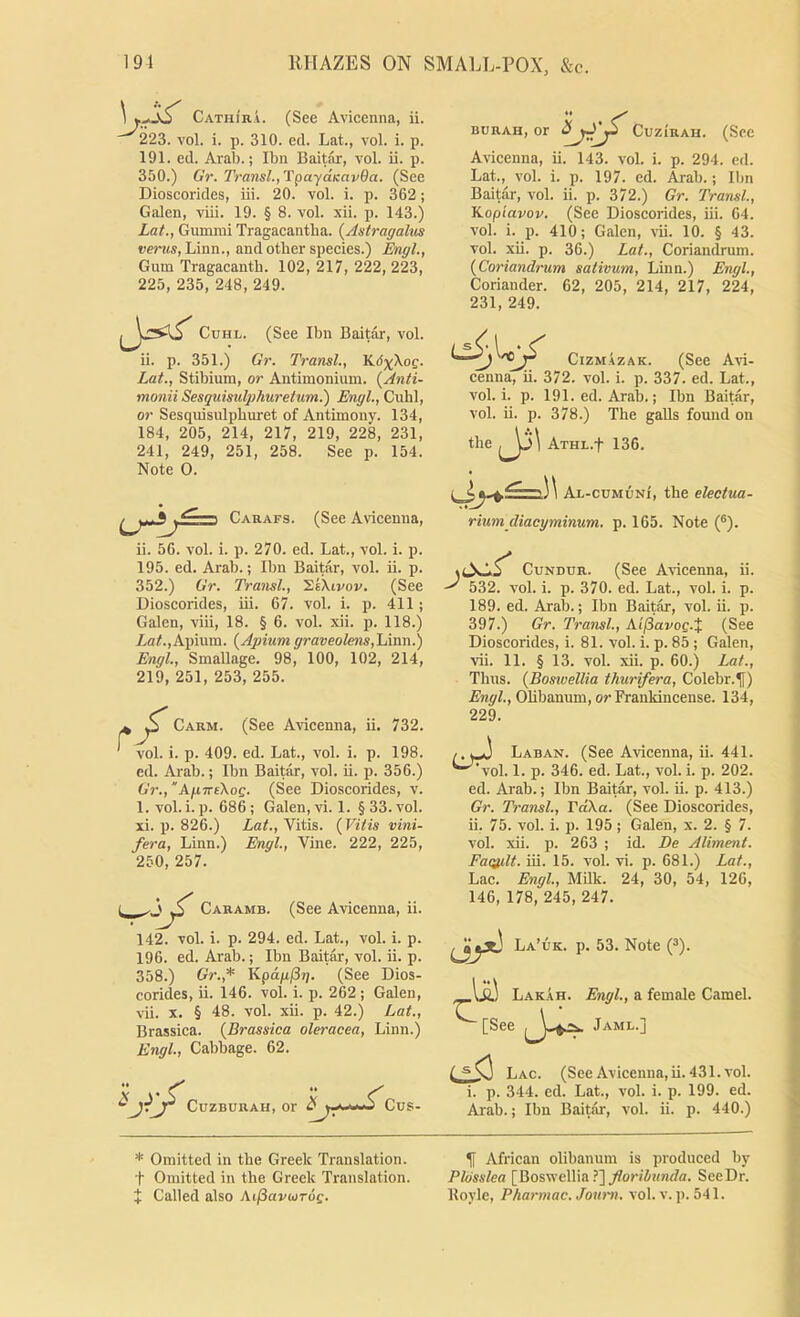 194 RHAZES ON SMALL-POX, &c.
كثيرا Cathírá. (See Avicenna, ii.
223. vol. i. p. 310. ed. Lat., vol. i. p.
191. ed. Arab.; Ibn Baitár, vol. ii. p.
350.) Gr. Transl., Τραγάκανθα. (See
Dioscorides, iii. 20. vol. i. p. 362;
Galen, viii. 19. § 8. vol. xii. p. 143.)
Lat., Gummi Tragacantha. (Astragalus
verus, Linn., and other species.) Engl.,
Gum Tragacanth. 102, 217, 222, 223,
225, 235, 248, 249.
كحل Cuhl. (See Ibn Baitár, vol.
ii. p. 351.) Gr. Transl., Κόχλος.
Lat., Stibium, or Antimonium. (Anti-
monii Sesquisulphuretum.) Engl., Cuhl,
or Sesquisulphuret of Antimony. 134,
184, 205, 214, 217, 219, 228, 231,
241, 249, 251, 258. See p. 154.
Note O.
كرفس Carafs. (See Avicenna,
ii. 56. vol. i. p. 270. ed. Lat., vol. i. p.
195. ed. Arab.; Ibn Baitár, vol. ii. p.
352.) Gr. Transl., Σέλινον. (See
Dioscorides, iii. 67. vol. i. p. 411;
Galen, viii, 18. § 6. vol. xii. p. 118.)
Lat., Apium. (Apium graveolens, Linn.)
Engl., Smallage. 98, 100, 102, 214,
219, 251, 253, 255.
كرم Carm. (See Avicenna, ii. 732.
vol. i. p. 409. ed. Lat., vol. i. p. 198.
ed. Arab.; Ibn Baitár, vol. ii. p. 356.)
Gr., Ἄμπελος. (See Dioscorides, v.
1. vol. i. p. 686; Galen, vi. 1. § 33. vol.
xi. p. 826.) Lat., Vitis. (Vitis vini-
fera, Linn.) Engl., Vine. 222, 225,
250, 257.
كرنب Caramb. (See Avicenna, ii.
142. vol. i. p. 294. ed. Lat., vol. i. p.
196. ed. Arab.; Ibn Baitár, vol. ii. p.
358.) Gr.,* Κράμβη. (See Dios-
corides, ii. 146. vol. i. p. 262; Galen,
vii. x. § 48. vol. xii. p. 42.) Lat.,
Brassica. (Brassica oleracea, Linn.)
Engl., Cabbage. 62.
كزبرة Cuzburah, or كسبرة Cus-
burah, or كزيرة Cuzírah. (See
Avicenna, ii. 143. vol. i. p. 294. ed.
Lat., vol. i. p. 197. ed. Arab.; Ibn
Baitár, vol. ii. p. 372.) Gr. Transl.,
Κορίανον. (See Dioscorides, iii. 64.
vol. i. p. 410; Galen, vii. 10. § 43.
vol. xii. p. 36.) Lat., Coriandrum.
(Coriandrum sativum, Linn.) Engl.,
Coriander. 62, 205, 214, 217, 224,
231, 249.
كزمازك Cizmázak. (See Avi-
cenna, ii. 372. vol. i. p. 337. ed. Lat.,
vol. i. p. 191. ed. Arab.; Ibn Baitár,
vol. ii. p. 378.) The galls found on
the اثل Athl.† 136.
الكموني Al-cumúní, the electua-
rium diacyminum. p. 165. Note (6).
كندر Cundur. (See Avicenna, ii.
532. vol. i. p. 370. ed. Lat., vol. i. p.
189. ed. Arab.; Ibn Baitár, vol. ii. p.
397.) Gr. Transl., Λίβανος.‡ (See
Dioscorides, i. 81. vol. i. p. 85; Galen,
vii. 11. § 13. vol. xii. p. 60.) Lat.,
Thus. (Boswellia thurifera, Colebr.¶)
Engl., Olibanum, or Frankincense. 134,
229.
لبن Laban. (See Avicenna, ii. 441.
vol. 1. p. 346. ed. Lat., vol. i. p. 202.
ed. Arab.; Ibn Baitár, vol. ii. p. 413.)
Gr. Transl., Γάλα. (See Dioscorides,
ii. 75. vol. i. p. 195; Galen, x. 2. § 7.
vol. xii. p. 263; id. De Aliment.
Facult. iii. 15. vol. vi. p. 681.) Lat.,
Lac. Engl., Milk. 24, 30, 54, 126,
146, 178, 245, 247.
لعوق La'úk. p. 53. Note (3).
لقاح Lakáh. Engl., a female Camel.
[See جمل Jaml.]
لك Lac. (See Avicenna, ii. 431. vol.
i. p. 344. ed. Lat., vol. i. p. 199. ed.
Arab.; Ibn Baitár, vol. ii. p. 440.)
* Omitted in the Greek Translation.
† Omitted in the Greek Translation.
‡ Called also Λιβανωτός.
¶ African olibanum is produced by
Plösslea [Boswellia?] floribunda. See Dr.
Royle, Pharmac. Journ. vol. v. p. 541.